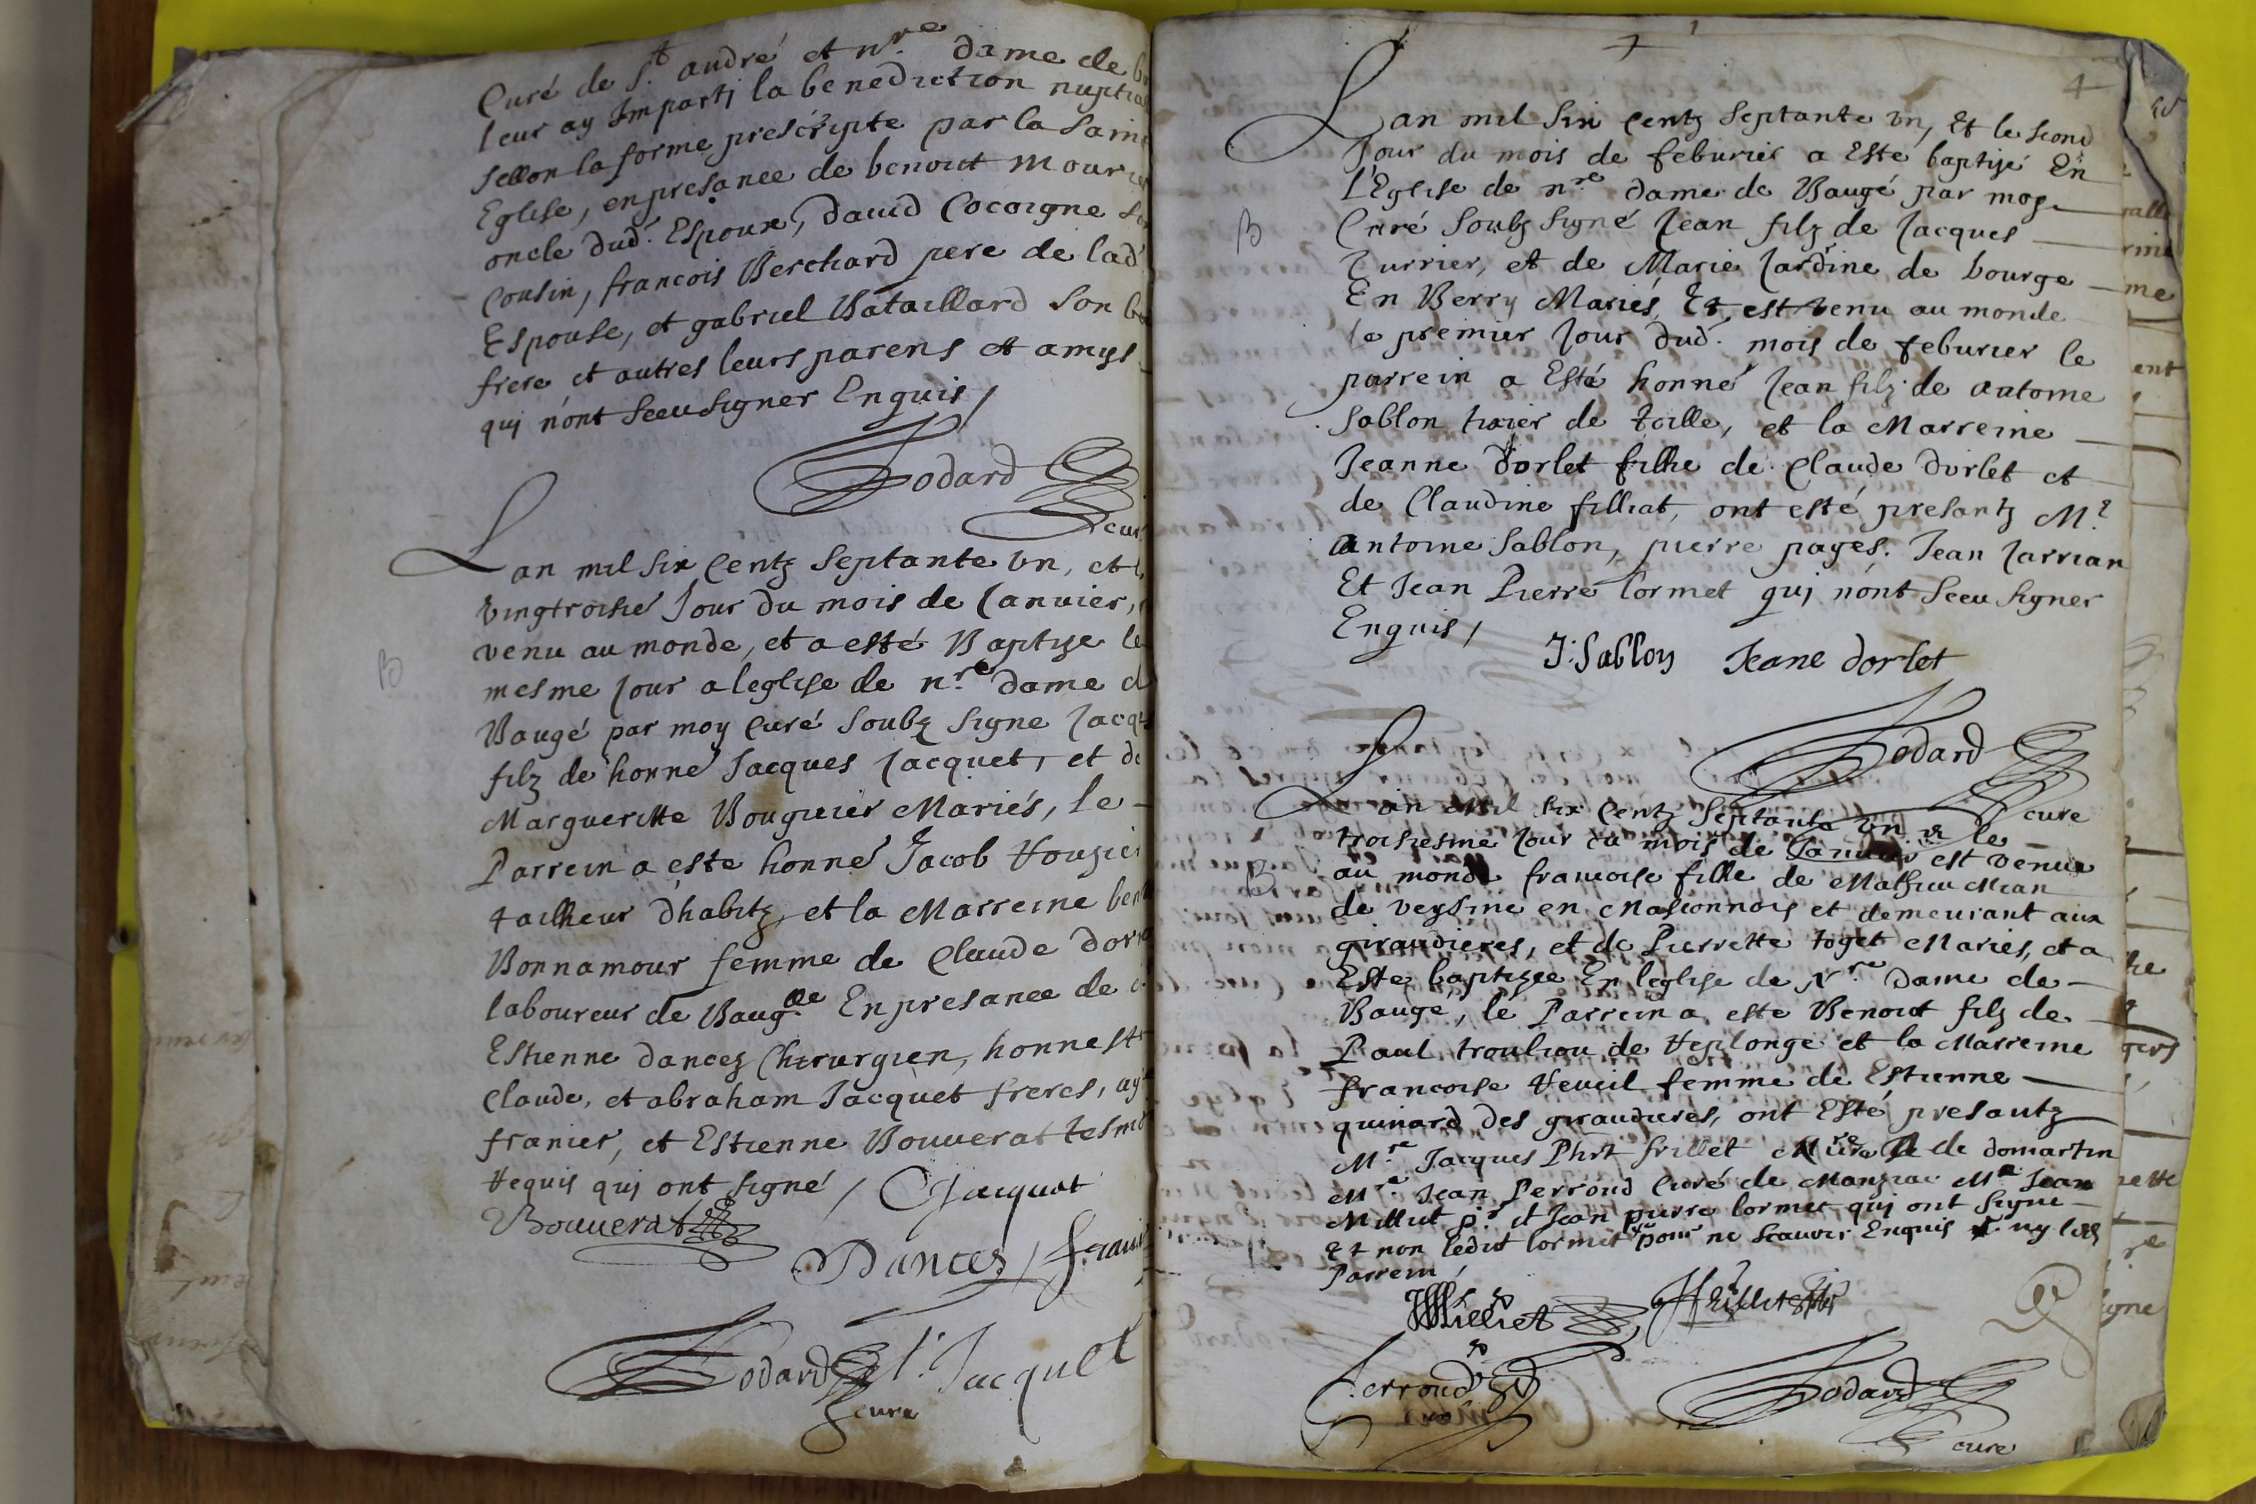 Curé de St andré et nre dame de
leur ay Imparti la benediction nuptia
sellon la forme prescripte par la sain
Eglise, en presance de benoict Mour
oncle dud. Espoux, david Cocoigne
Cousin, francois Berchard pere de lad
Espouse, et gabriel Bataillard son
frere et autres leurs parens et amys
qui n'ont sceu signer Enquis /
Godard
cur
Lan mil six Centz septante vn, et
vingtroisie Jour du mois de Janvier,
venu au monde, et a esté Baptize le
mesme Jour a leglise de nre dame d
Baugé par moy curé soubz signe Jacq
filz de honne Jacques Jacquet, et de
Marguerite Bouguier Mariés, le
Parrein a este honne Jacob
tailheur dhabitz, et la Marreine
Bonnamour femme de Claude
laboureur de Baug En presance de
Estienne dancez Chirurgien, honnest
Claude, et abraham Jacquet freres,
franier, et Estienne Bouverat tesmo
requis qui ont signé / C Jacquet
Bouverat
Dancez /
Godard Jacquet
cure
4
B
Lan mil six Centz septante vn, Et le second
Jour du mois de feburier a Esté baptizé En
L'Eglise de nre dame de Baugé par moy
B
Curé soubz signé Jean filz de Jacques
Currier, et de Marie Jardine de bourge
En Berry Mariés, Et est venu au monde
le premier Jour dud. mois de feburier le
parrein a Esté honne Jean filz de antoine
Sablon tixier de toille, et la Marreine
Jeanne dorlet fillie de Claude dorlet et
de Claudine filliat, ont esté presantz Mr
antoine Sablon, pierre pages. Jean Jarrian
Et Jean Pierre Cormet qui n'ont sceu signer
Enquis /
J. Sablon Jeane dorlet
Godard
cure
Lan Mil six Centz septante vn et le
troisiesme Jour du mois de Janvier est venue
B
au monde francoise fille de Mathieu Mian
de veysine en Masconnois et demeurant aux
giraudieres, et de Pierrette toget Mariés, et a
Este baptizee En leglise de Nre Dame de
Bauge, le Parrein a este Benoict filz de
Paul troulliou de Replonge et la Marreine
francoise Reveil femme de Estienne
quinard des giraudieres, ont Esté presantz
Mre Jacques Phrt frillet de domartin
Mre Jean Perroud Curé de Manziac Mre Jean
Milliet et Jean pierre Cormet qui ont signe
Et non ledit Cormet pour ne scavoir Enquis ny led
Parrein /
Milliet
Perroud
Godard
cure